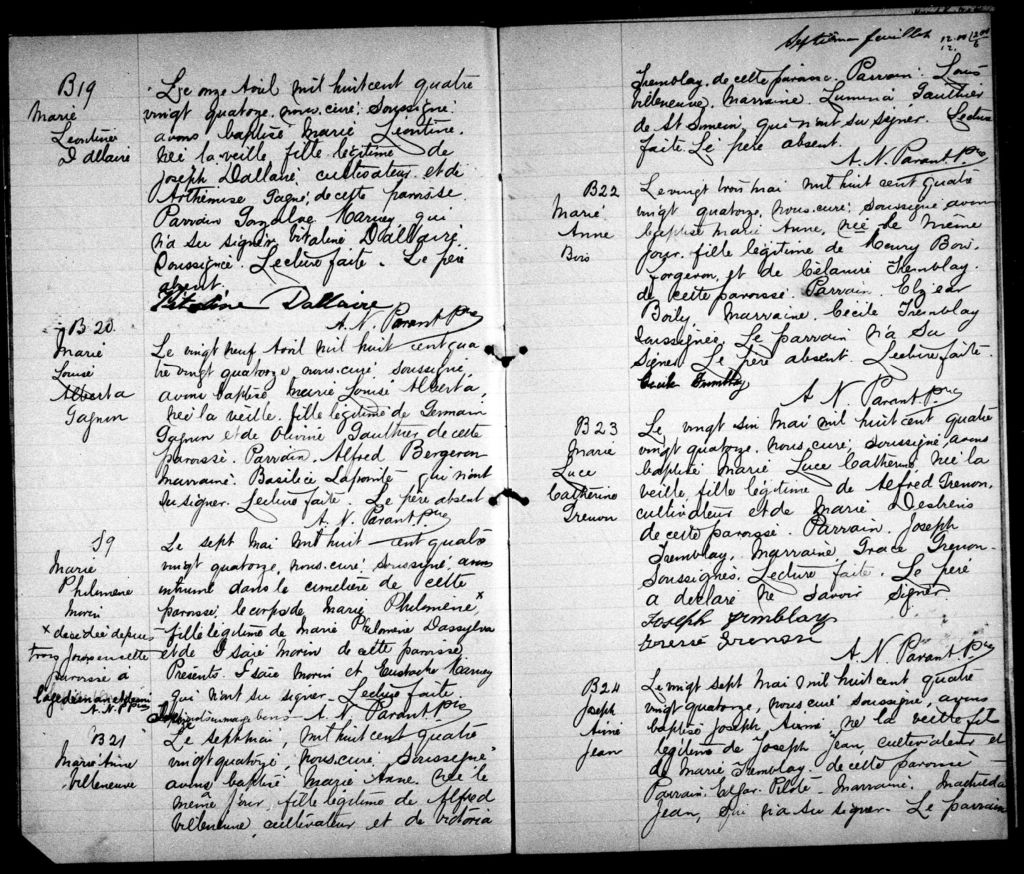 B19
Marie
Leontine
Dallaire
Le onze Avril mil huit cent quatre
vingt quatorze, nous, curé, soussigné,
avons baptisé Marie Léontine,
née la veille, fille légitime de
Joseph Dallaire cultivateur et de
Arthémise Gagné, de cette paroisse.
Parrain Harvey qui
n'a su signer, Vitaline Dallaire
soussignée. Lecture faite. Le père
absent.
Vitaline Dallaire
A. N. Parant Ptre
B 20
Marie
Louise
Alberta
Gagnon
Le vingt neuf Avril mil huit cent qua
tre vingt quatorze, nous, curé soussigné,
avons baptisé Marie Louise Alberta,
née la veille, fille légitime de Germain
Gagnon et de Olivine Gauthier de cette
paroisse. Parrain. Alfred Bergeron
marraine. Basilice Lapointe qui n'ont
su signer. Lecture faite. Le père absent
A. N. Parant Ptre
S9
Marie
Philomène
Morin
x décédée depuis
trois jours en cette
paroisse à
l'age de
A. N. P. Ptre
Le sept Mai mil huit cent quatre
vingt quatorze, nous, curé, soussigné, avons
inhumé dans le cimetière de cette
paroisse le corps de Marie Philomène, x
fille légitime de Marie Philomène Dassylva
et de Isaïe Morin de cette paroisse.
Présents. Isaïe Morin et Eustache Harvey
qui n'ont su signer. Lecture faite.
bons A. N. Parant Ptre
B21
Marie Anne
Villeneuve
Le sept mai, mil huit cent quatre
vingt quatorze, nous, curé, soussigné
avons baptisé Marie Anne, née le
même jour, fille légitime de Alfred
Villeneuve, cultivateur et de Victoria
Septième feuillet
Tremblay, de cette paroisse. Parrain. Louis
Villeneuve, Marraine, Lumina Gauthier
de St Siméon, qui n'ont su signer. Lecture
faite. Le père absent.
A. N. Parant Ptre
B22
Marie
Anne
Bois
Le vingt trois mai mil huit cent quatre
vingt quatorze, nous, curé, soussigné avons
baptisé Marie Anne, née le même
jour, fille légitime de Henry Bois,
forgeron, et de Célanire Tremblay
de cette paroisse. Parrain Elzéar
Boily Marraine. Cécile Tremblay
soussignée. Le parrain n'a su
signer. Le père absent. Lecture faite.
Cécile Tremblay
A. N. Parant Ptre
B23
Marie
Luce
Catherine
Grenon
Le vingt six Mai mil huit cent quatre
vingt quatorze, nous, curé, soussigné, avons
baptisé Marie Luce Catherine, née la
veille, fille légitime de Alfred Grenon,
cultivateur et de Marie Desbiens
de cette paroisse. Parrain, Joseph
Tremblay, Marraine Grenon
soussignés. Lecture faite. Le père
a déclaré ne savoir signer
Joseph Tremblay
Grenon
A. N. Parant Ptre
B24
Joseph
Aimé
Jean
Le vingt sept Mai mil huit cent quatre
vingt quatorze, nous, curé soussigné, avons
baptisé Joseph Aimé né la veille fils
légitime de Joseph Jean, cultivateur et
de Marie Tremblay de cette paroisse
Parrain Pilote Marraine.
Jean, qui n'a su signer. Le parrain